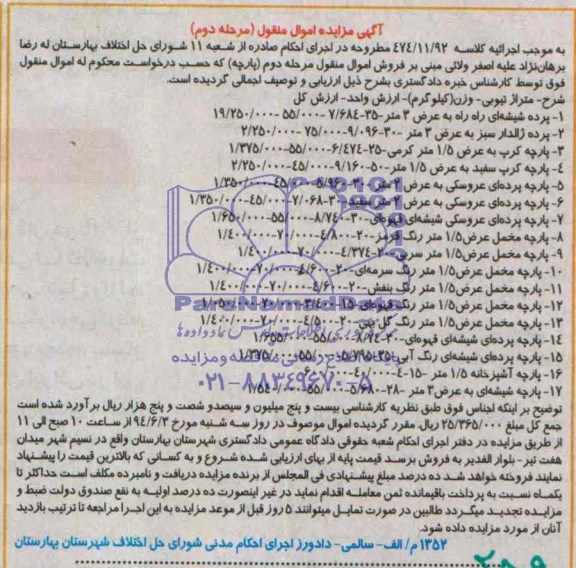 آگهی مزایده اموال منقول (مرحله دوم)
به موجب اجرائیه کلاسه ۴۷۴/۱۱/۹۲ مطروحه در اجرای احکام صادره از شعبه ۱۱ شورای حل اختلاف بهارستان له رضا
برهان‌نژاد علیه اصغر ولائی مبنی بر فروش اموال منقول مرحله دوم (پارچه) که حسب درخواست محکوم له اموال منقول
فوق توسط کارشناس خبره دادگستری بشرح ذیل ارزیابی و توصیف اجمالی گردیده است.
شرح- متراژ تیوبی- وزن(کیلوگرم)- ارزش واحد- ارزش کل
۱- پرده شیشه‌ای راه راه به عرض ۳ متر-۳۵-۷/۶۸۴ -۵۵/۰۰۰ -۱۹/۲۵۰/۰۰۰
۲- پرده ژالدار سبز به عرض ۳ متر -۳۰-۹/۰۹۶-۷۵/۰۰۰-۲/۲۵۰/۰۰۰
۳- پارچه کرپ به عرض ۱/۵ متر کرمی-۲۵-۶/۴۷۴-۵۵/۰۰۰-۱/۳۷۵/۰۰۰
۴- پارچه کرپ سفید به عرض ۱/۵ متر-۵۰-۹/۱۶۰-۴۵/۰۰۰-۲/۲۵۰/۰۰۰
۵- پارچه پرده‌ای عروسکی به عرض ۲ متر -۳۰-۵/۹۶۰-۴۵/۰۰۰-۱/۳۵۰/۰۰۰
۶- پارچه پرده‌ای عروسکی به عرض ۲ متر سفید-۳۰-۷/۰۶۸-۴۵/۰۰۰-۱/۳۵۰/۰۰۰
۷- پارچه پرده‌ای عروسکی شیشه‌ای قهوه‌ای-۳۰-۸/۷۴۰-۵۵/۰۰۰-۱/۶۵۰/۰۰۰
۸- پارچه مخمل عرض۱/۵ متر رنگ قرمز-۲۰-۴/۸۰۰-۷۰/۰۰۰-۱/۴۰۰/۰۰۰
۹- پارچه مخمل عرض۱/۵ متر سربی-۲۰-۴/۳۷۴-۷۰/۰۰۰-۱/۴۰۰/۰۰۰
۱۰- پارچه مخمل عرض۱/۵ متر رنگ سرمه‌ای-۲۰-۴/۶۰۰-۷۰/۰۰۰-۱/۴۰۰/۰۰۰
۱۱- پارچه مخمل عرض۱/۵ متر رنگ بنفش-۲۰-۴/۶۰۰-۷۰/۰۰۰-۱/۴۰۰/۰۰۰
۱۲- پارچه مخمل عرض۱/۵ متر رنگ قهوه‌ای-۱۵-۳/۴۰۰-۷۰/۰۰۰
۱۳- پارچه مخمل عرض۱/۵ متر رنگ گل بهی-۲۰-۴/۵۰۰-۷۰/۰۰۰-۱/۴۰۰/۰۰۰
۱۴- پارچه پرده‌ای شیشه‌ای قهوه‌ای-۳۰-۸/۷۴
۱۵- پارچه پرده‌ای شیشه‌ای رنگ آبی-۲۵-۵/۷۹۵-۵۵/۰۰۰-۱/۳۷۵/۰۰۰
۱۶- پارچه آشپزخانه ۱/۵ متر -۱۵-۴-۴۰/۰۰۰-۶۰۰/۰۰۰
۱۷- پارچه شیشه‌ای به عرض۳ متر -۲۸-۵/۶۸۰-۵۵/۰۰۰-۱/۵۴۰/۰۰۰
توضیح بر اینکه اجناس فوق طبق نظریه کارشناسی بیست و پنج میلیون و سیصدو شصت و پنج هزار ریال برآورد شده است
جمع کل مبلغ ۲۵/۳۶۵/۰۰۰ ریال. مقرر گردیده اموال موصوف در روز سه شنبه مورخ ۹۴/۶/۳ از ساعت ۱۰ صبح الی ۱۱
از طریق مزایده در دفتر اجرای احکام شعبه حقوقی دادگاه عمومی دادگستری شهرستان بهارستان واقع در نسیم شهر میدان
هفت تیر- بلوار الغدیر به فروش برسد قیمت پایه از بهای ارزیابی شده شروع و به کسانی که بالاترین قیمت را پیشنهاد
نمایند فروخته خواهد شد ده درصد مبلغ پیشنهادی فی المجلس از برنده مزایده دریافت و نامبرده مکلف است حداکثر تا
یکماه نسبت به پرداخت باقیمانده ثمن معامله اقدام نماید در غیر اینصورت ده درصد اولیه به نفع صندوق دولت ضبط و
مزایده تجدید میگردد طالبین در صورت تمایل میتوانند ۵ روز قبل از موعد مزایده به این اجرا مراجعه تا ترتیب بازدید
آنان از مورد مزایده داده شود.
۱۳۵۲م/ الف- سالمی- دادورز اجرای احکام مدنی شورای حل اختلاف شهرستان بهارستان
ParsNamadData
۰۲۱-۸۸۳۴۹۶۷۰-۵